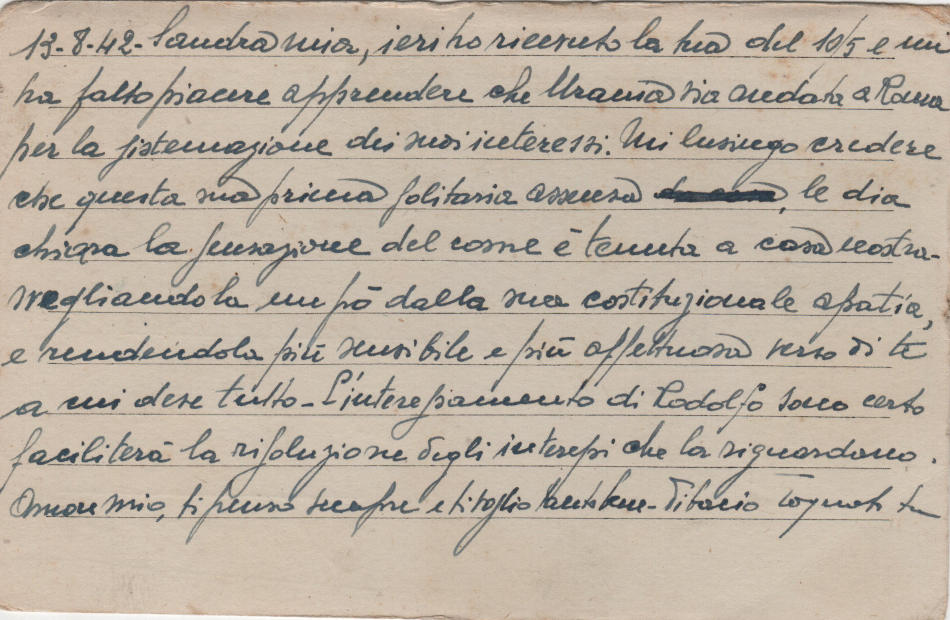 13-8-42- Sandra mia, ieri ho ricevuto la tua del 10/5 e mi
ha fatto piacere apprendere che Urania sia andata a Roma
per la sistemazione dei suoi interessi. Mi lusingo credere
che questa sua prima solitaria assenza, le dia
chiara la sensazione del come è tenuta a casa nostra-
svegliandola un pò dalla sua costituzionale apatia,
e rendendola più sensibile e più affettuosa verso di te
a cui deve tutto- L'interessamento di Rodolfo sono certo
faciliterà la risoluzione degli interessi che la riguardano.
Amor mio, ti penso sempre e ti voglio tanto bene- Ti bacio tuo